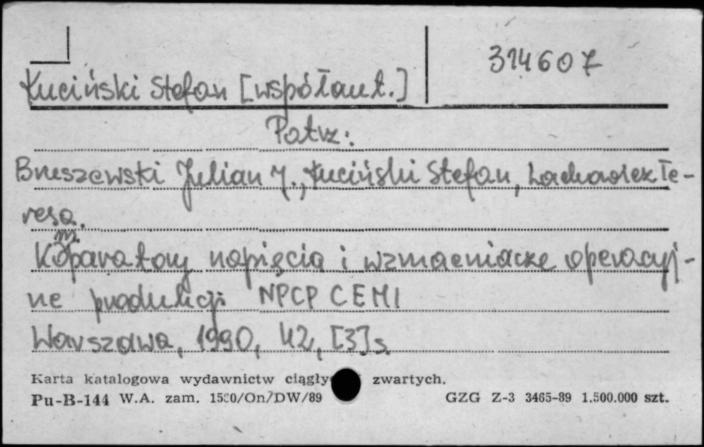 314607
Łuciński Stefan [współaut.]
Patrz:
Bruszewski Julian J., Łuciński Stefan, Lachowicz Te-
resa.
Komparatory napięcia i wzmacniacze operacyj-
ne produkcji NPCP CEMI
Warszawa, 1990, 42, [3] s.
Karta katalogowa wydawnictw zwartych.
Pu-B-144 W.A. zam. 1580/On/DW/89 GZG Z-3 3465-89 1.500.000 szt.